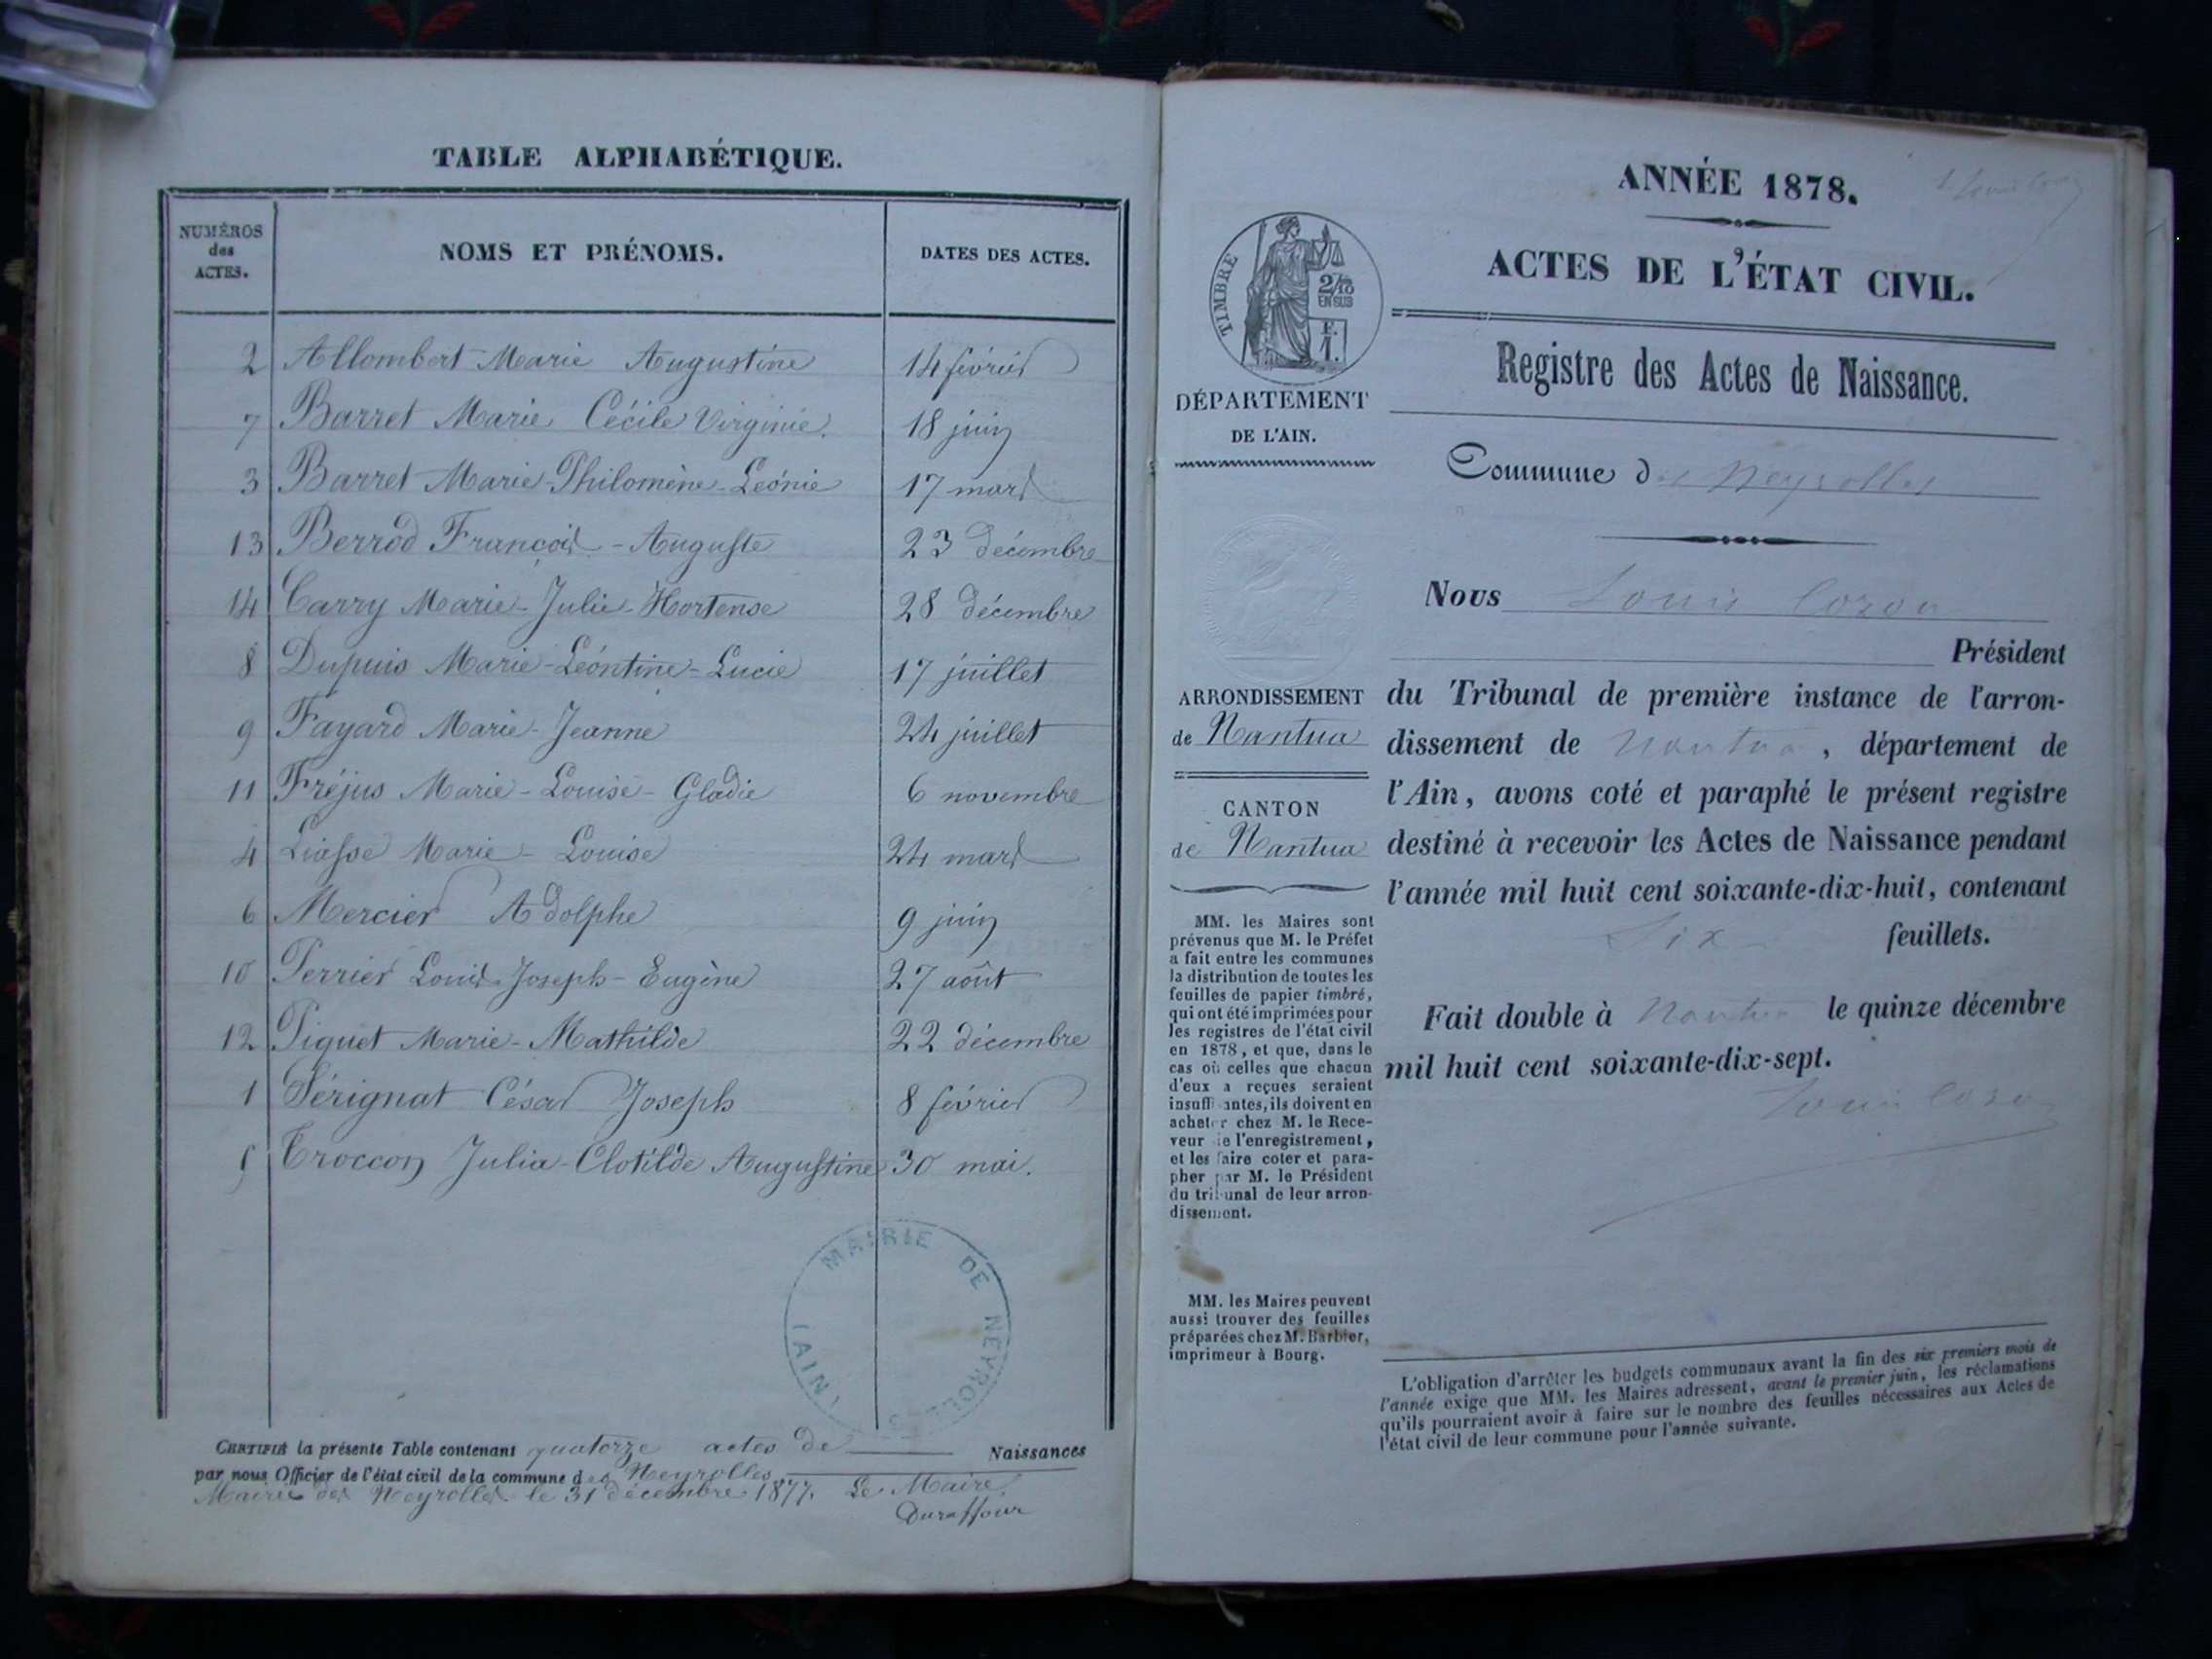 TABLE ALPHABÉTIQUE.
NUMÉROS des ACTES.
NOMS ET PRÉNOMS.
DATES DES ACTES.
2 Allombert Marie Augustine 14 février
7 Barret Marie Cécile Virginie. 18 juin
3 Barret Marie-Philomène-Léonie 17 mars
13 Berrod François-Auguste 23 décembre
14 Carry Marie-Julie-Hortense 28 décembre
8 Dupuis Marie-Léontine-Lucie 17 juillet
9 Fayard Marie-Jeanne 24 juillet
11 Fréjus Marie-Louise-Gladie 6 novembre
4 Liasse Marie-Louise 24 mars
6 Mercier Adolphe 9 juin
10 Perrier Louis-Joseph-Eugène 27 août
12 Piquet Marie-Mathilde 22 décembre
1 Sérignat César Joseph 8 février
5 Troccon Julia-Clotilde Augustine 30 mai.
MAIRIE DE NEYROLLES (AIN)
CERTIFIÉ la présente Table contenant quatorze actes de Naissances
par nous Officier de l'état civil de la commune des Neyrolles
Mairie des Neyrolles le 31 décembre 1877. Le Maire.
Duraffour
ANNÉE 1878.
ACTES DE L'ÉTAT CIVIL.
TIMBRE
2/10
EN SUS
F.
1.
DÉPARTEMENT
DE L'AIN.
ARRONDISSEMENT
de Nantua
CANTON
de Nantua
MM. les Maires sont
prévenus que M. le Préfet
a fait entre les communes
la distribution de toutes les
feuilles de papier timbré,
qui ont été imprimées pour
les registres de l'état civil
en 1878, et que, dans le
cas où celles que chacun
d'eux a reçues seraient
insuffisantes, ils doivent en
acheter chez M. le Rece-
veur de l'enregistrement,
et les faire coter et para-
pher par M. le Président
du tribunal de leur arron-
dissement.
MM. les Maires peuvent
aussi trouver des feuilles
préparées chez M. Barbier,
imprimeur à Bourg.
Registre des Actes de Naissance.
Commune des Neyrolles
NOUS Louis Cozon
Président
du Tribunal de première instance de l'arron-
dissement de Nantua, département de
l'Ain, avons coté et paraphé le présent registre
destiné à recevoir les Actes de Naissance pendant
l'année mil huit cent soixante-dix-huit, contenant
Six feuillets.
Fait double à Nantua le quinze décembre
mil huit cent soixante-dix-sept.
Louis Cozon
L'obligation d'arrêter les budgets communaux avant la fin des six premiers mois de
l'année exige que MM. les Maires adressent, avant le premier juin, les réclamations
qu'ils pourraient avoir à faire sur le nombre des feuilles nécessaires aux Actes de
l'état civil de leur commune pour l'année suivante.